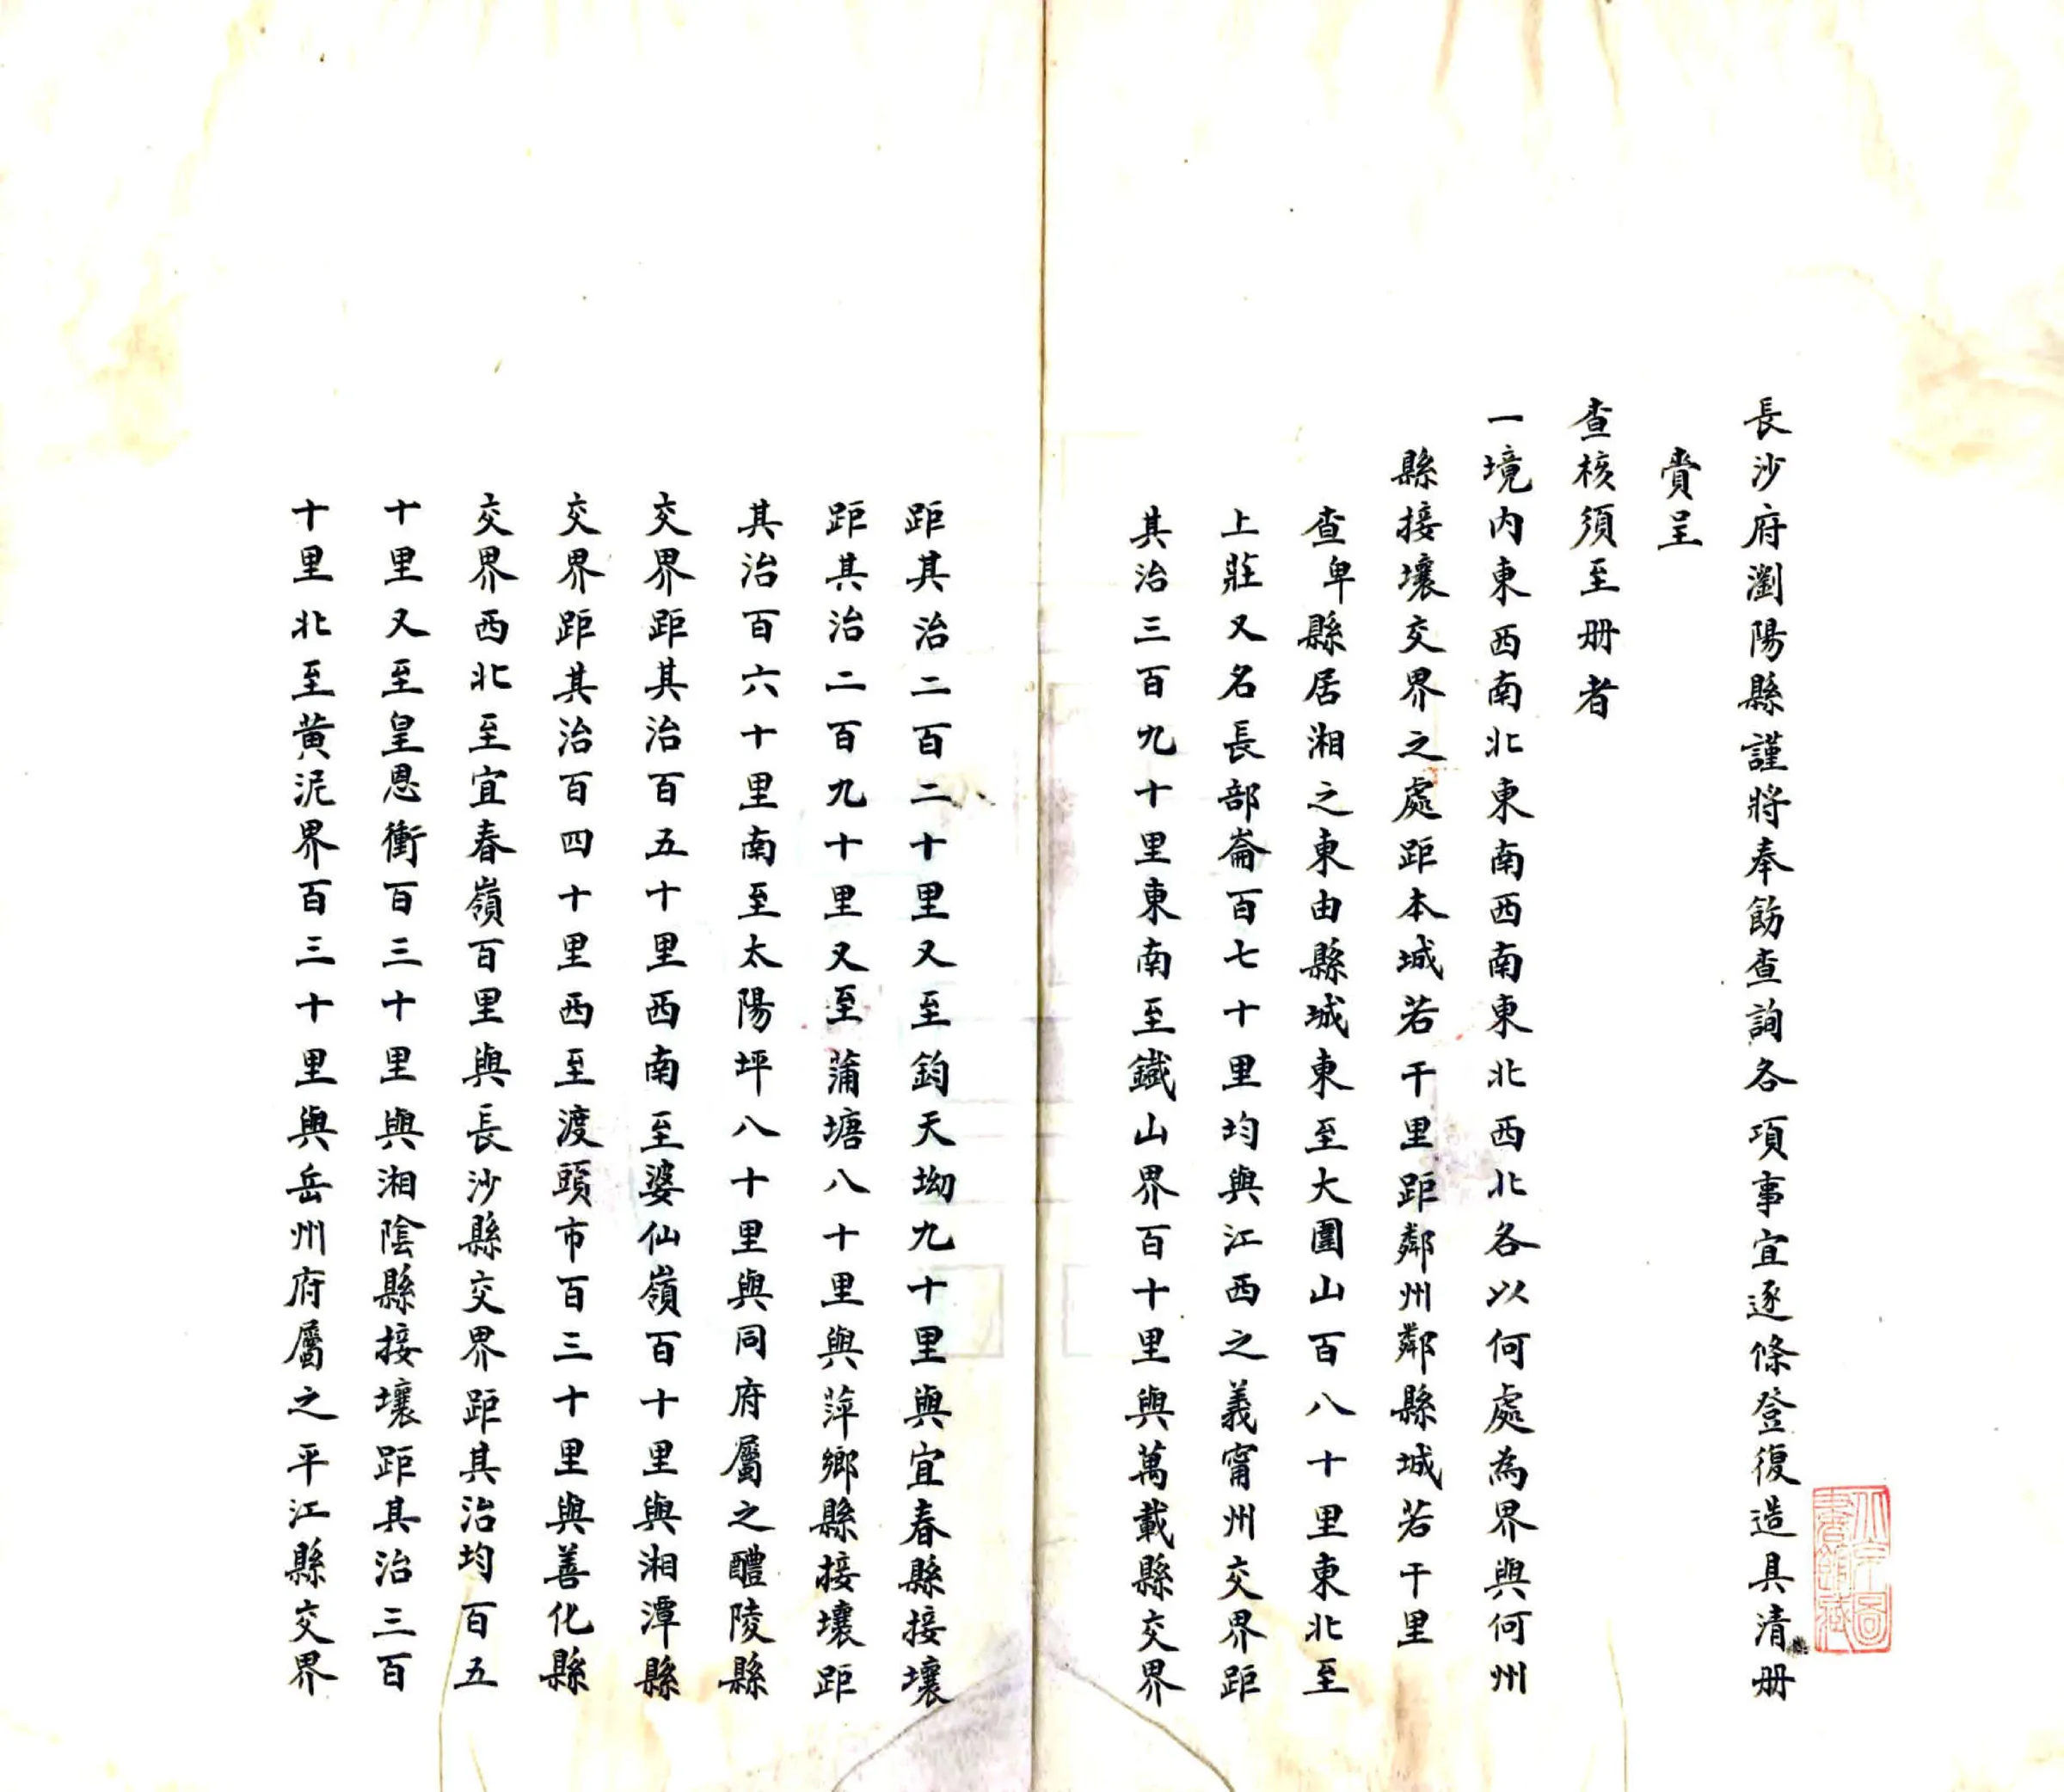 長沙府瀏陽縣謹將奉飭查詢各項事宜逐條登復造具清册
賫呈
查核須至册者
一境内東西南北東南西南東北西北各以何處為界與何州
縣接壤交界之處距本城若干里距鄰州鄰縣城若干里
查卑縣居湘之東由縣城東至大圍山百八十里東北至
上莊又名長部崙百七十里均與江西之義甯州交界距
其治三百九十里東南至鐵山界百十里與萬載縣交界
距其治二百二十里又至鈞天坳九十里與宜春縣接壤
距其治二百九十里又至蒲塘八十里與萍鄉縣接壤距
其治百六十里南至太陽坪八十里與同府屬之醴陵縣
交界距其治百五十里西南至婆仙嶺百十里與湘潭縣
交界距其治百四十里西至渡頭市百三十里與善化縣
交界西北至宜春嶺百里與長沙縣交界距其治均百五
十里又至皇恩衝百三十里與湘陰縣接壤距其治三百
十里北至黄泥界百三十里與岳州府屬之平江縣交界
北京圖
書館藏